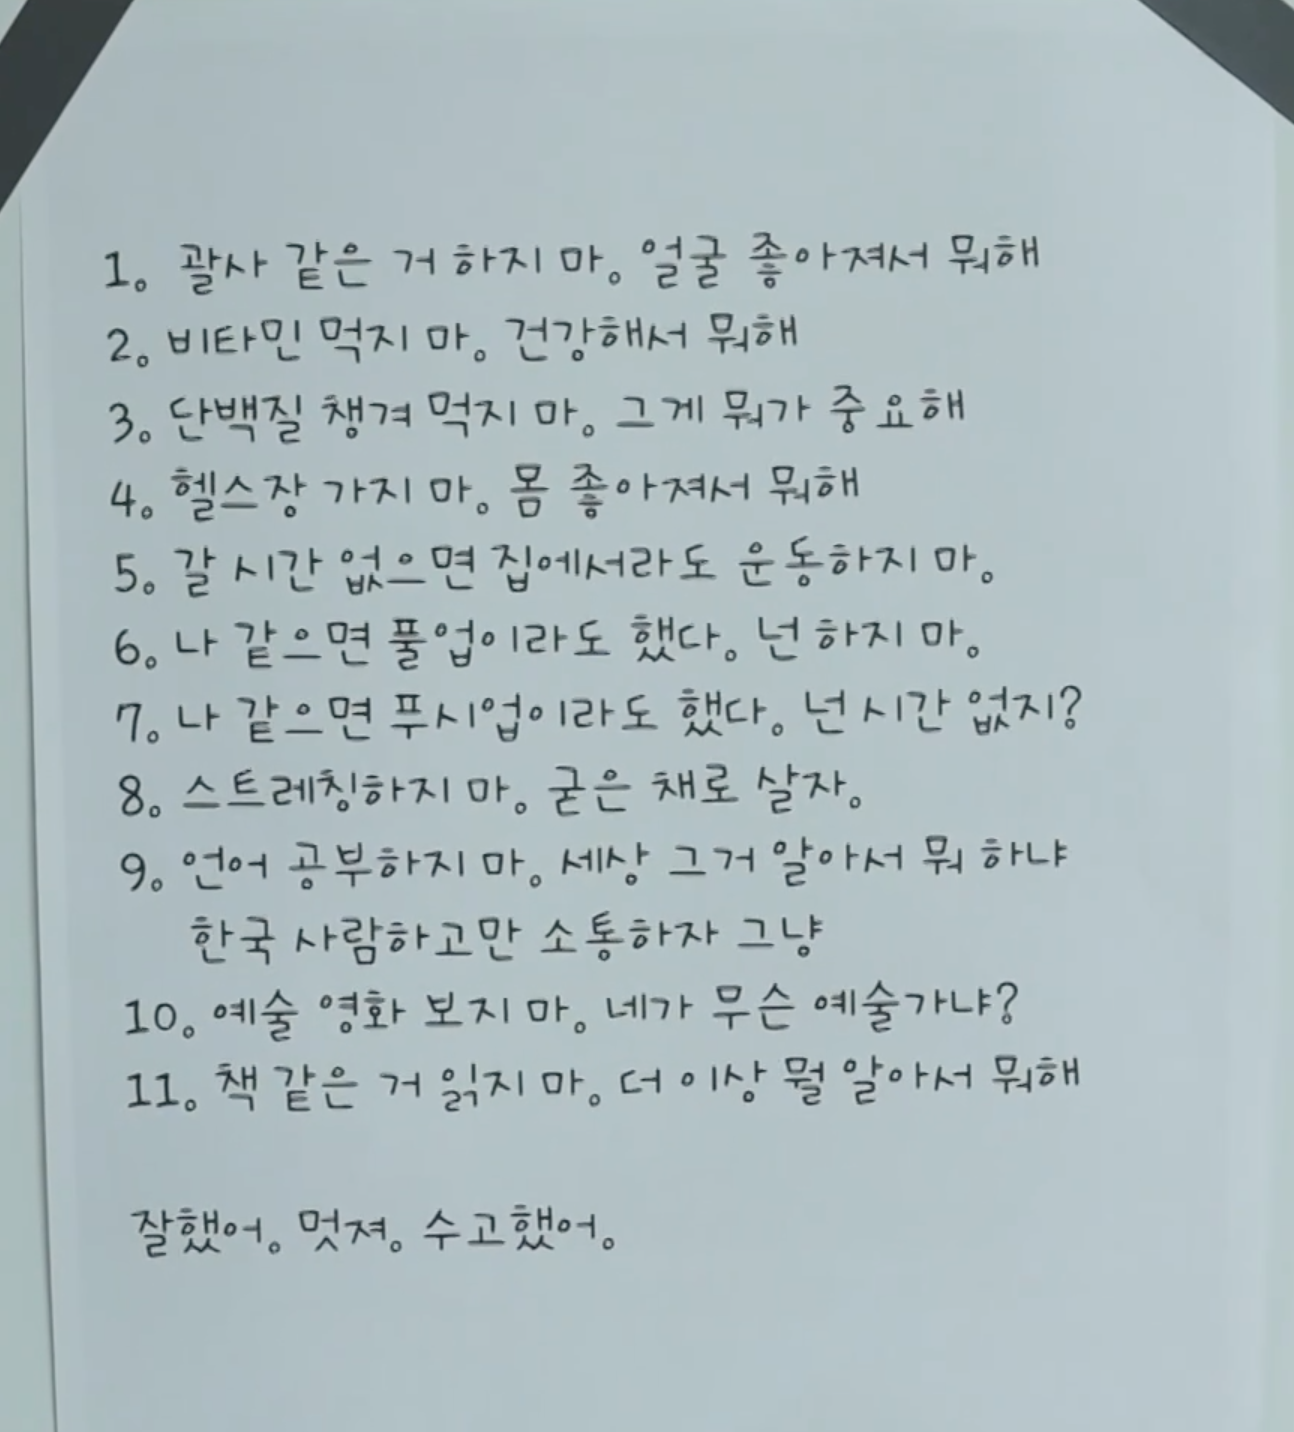 1. 괄사 같은 거 하지 마. 얼굴 좋아져서 뭐해
2. 비타민 먹지 마. 건강해서 뭐해
3. 단백질 챙겨 먹지 마. 그게 뭐가 중요해
4. 헬스장 가지 마. 몸 좋아져서 뭐해
5. 갈 시간 없으면 집에서라도 운동하지 마.
6. 나 같으면 풀업이라도 했다. 넌 하지 마.
7. 나 같으면 푸시업이라도 했다. 넌 시간 없지?
8. 스트레칭하지 마. 굳은 채로 살자.
9. 언어 공부하지 마. 세상 그거 알아서 뭐 하냐
한국 사람하고만 소통하자 그냥
10. 예술 영화 보지 마. 네가 무슨 예술가냐?
11. 책 같은 거 읽지 마. 더 이상 뭘 알아서 뭐해
잘했어. 멋져. 수고했어.